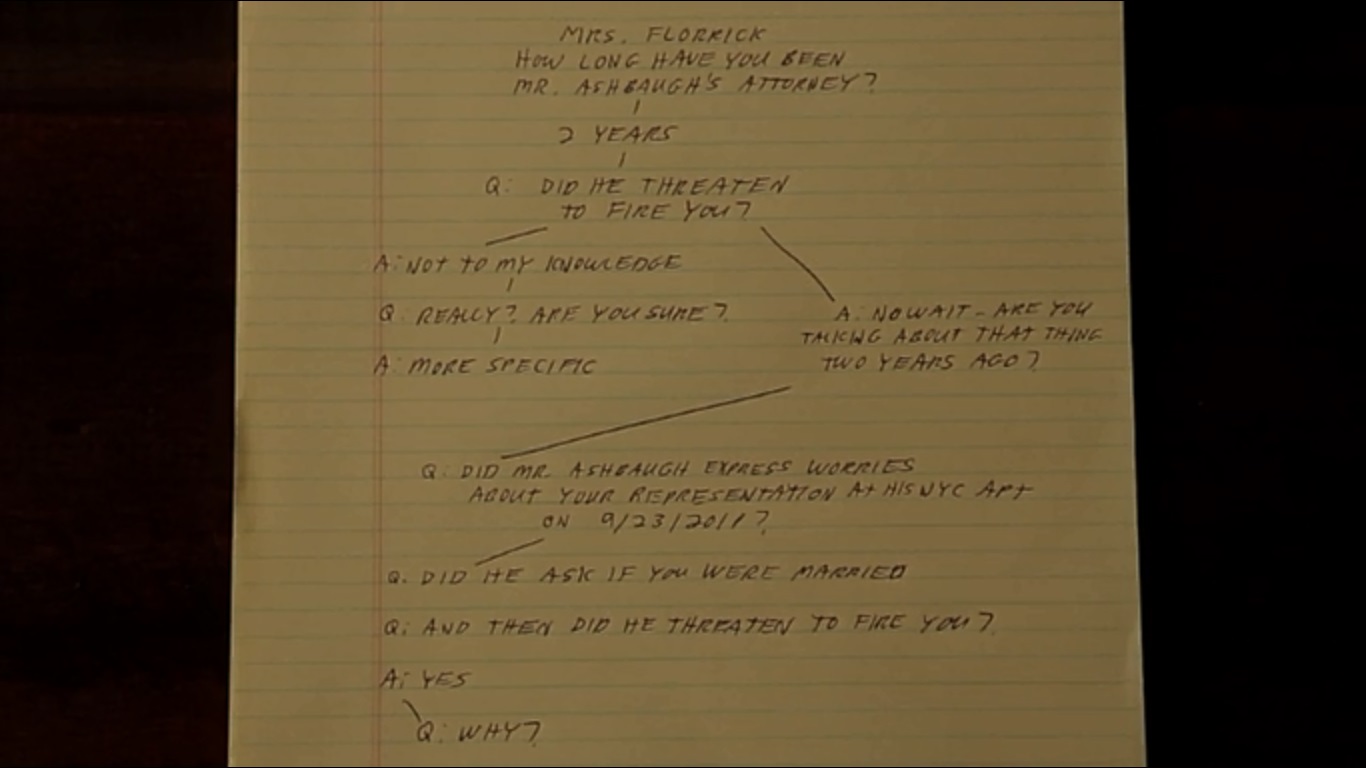 MRS. FLORRICK
HOW LONG HAVE YOU BEEN
MR. ASHBAUGH'S ATTORNEY?
2 YEARS
Q: DID HE THREATEN
TO FIRE YOU?
A: NOT TO MY KNOWLEDGE
Q: REALLY? ARE YOU SURE?
A: NO WAIT - ARE YOU
TALKING ABOUT THAT THING
TWO YEARS AGO?
A: MORE SPECIFIC
Q: DID MR. ASHBAUGH EXPRESS WORRIES
ABOUT YOUR REPRESENTATION AT HIS NYC APT
ON 9/23/2011?
Q. DID HE ASK IF YOU WERE MARRIED
Q: AND THEN DID HE THREATEN TO FIRE YOU?
A: YES
Q: WHY?